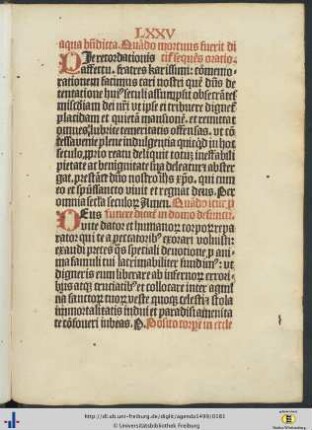 LXXV
aqua bn̄dicta. Quādo mortuus fuerit di
PIe recordationis cāf sequēs oratio.
affectu. fratres karissimi: cōmemo
rationem facimus cari nostri quē dn̄s de
tentatione huiꝰ seculi assumpsit obsecrātes
miscdiam dei nr̄i vt ipse ei tribuere dignetͬ
placidam et quietā mansionē. et remittat
omnes lubrice temeritatis offensas. vt cō
cessa venie plene indulgentia quicqd in hoc
seculo ꝓprio reatu deliquit totū ineffabili
pietate ac benignitate sua deleatur: abster
gat. prestāte dn̄o nostro ihū xp̄o. qui cum
eo et spūsancto viuit et regnat deus. Per
omnia secla seculoꝝ Amen. Quādo itur ꝓ
DEus funere dicat in domo defuncti.
vite dator et humanoꝝ corpoꝝ repa
rator: qui te a peccatoribꝰ exorari voluisti:
exaudi preces qs speciali deuotione ꝓ ani
ma famuli tui lacrimabiliter fundimꝰ: vt
digneris eum liberare ab infernoꝝ errori
bus atqꝫ cruciatibꝰ et collocare inter agmī
na sanctoꝝ tuoꝝ veste quoqꝫ celesti et stola
immortalitatis indui et paradisi amenita
te cōfoueri iubeas. P. Posito corpe in eccle
http://dl.ub.uni-freiburg.de/diglit/agenda1480/0181
© Universitätsbibliothek Freiburg